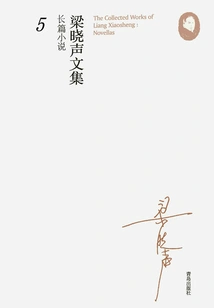 The Collected Works of
Liang Xiaosheng :
Novellas
梁晓声文集
长篇小说
5
梁晓声
青岛出版社